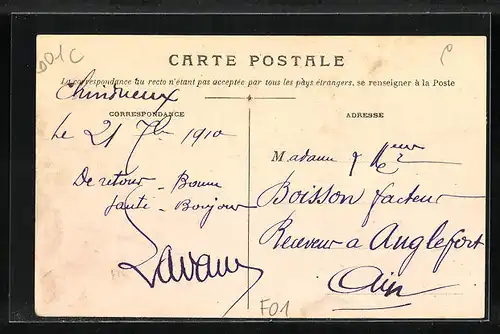 D01C
CARTE POSTALE
La correspondance au recto n'étant pas acceptée par tous les pays étrangers, se renseigner à la Poste
Chindrieux
CORRESPONDANCE
ADRESSE
Le 21 7bre 1910
Madame & Mr
De retour - Bonne
Santé - Bonjour
Boisson facteur
Receveur à Anglefort
Ain
F01